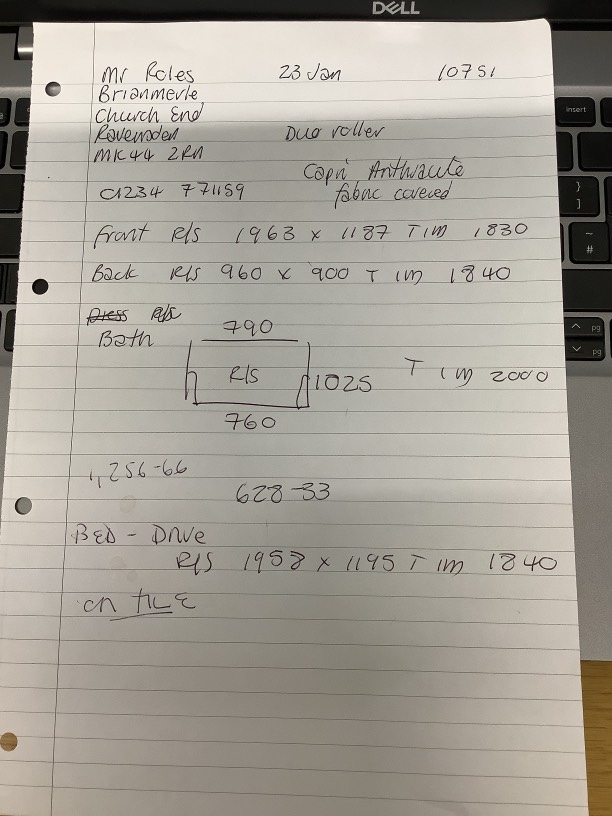 DELL
insert
Mr Roles 23 Jan 10751
Brianmerle
Church End
Ravensden Duo roller
MK44 2RN
Capri Anthracite
01234 771159 fabric covered
Front R/S 1963 x 1187 T 1M 1830
Back R/S 960 x 900 T 1M 1840
R/S
Bath 790
R/S 1025 T 1M 2000
760
1,256-66
628-33
BED - Drive
R/S 1958 x 1195 T 1M 1840
on FILE